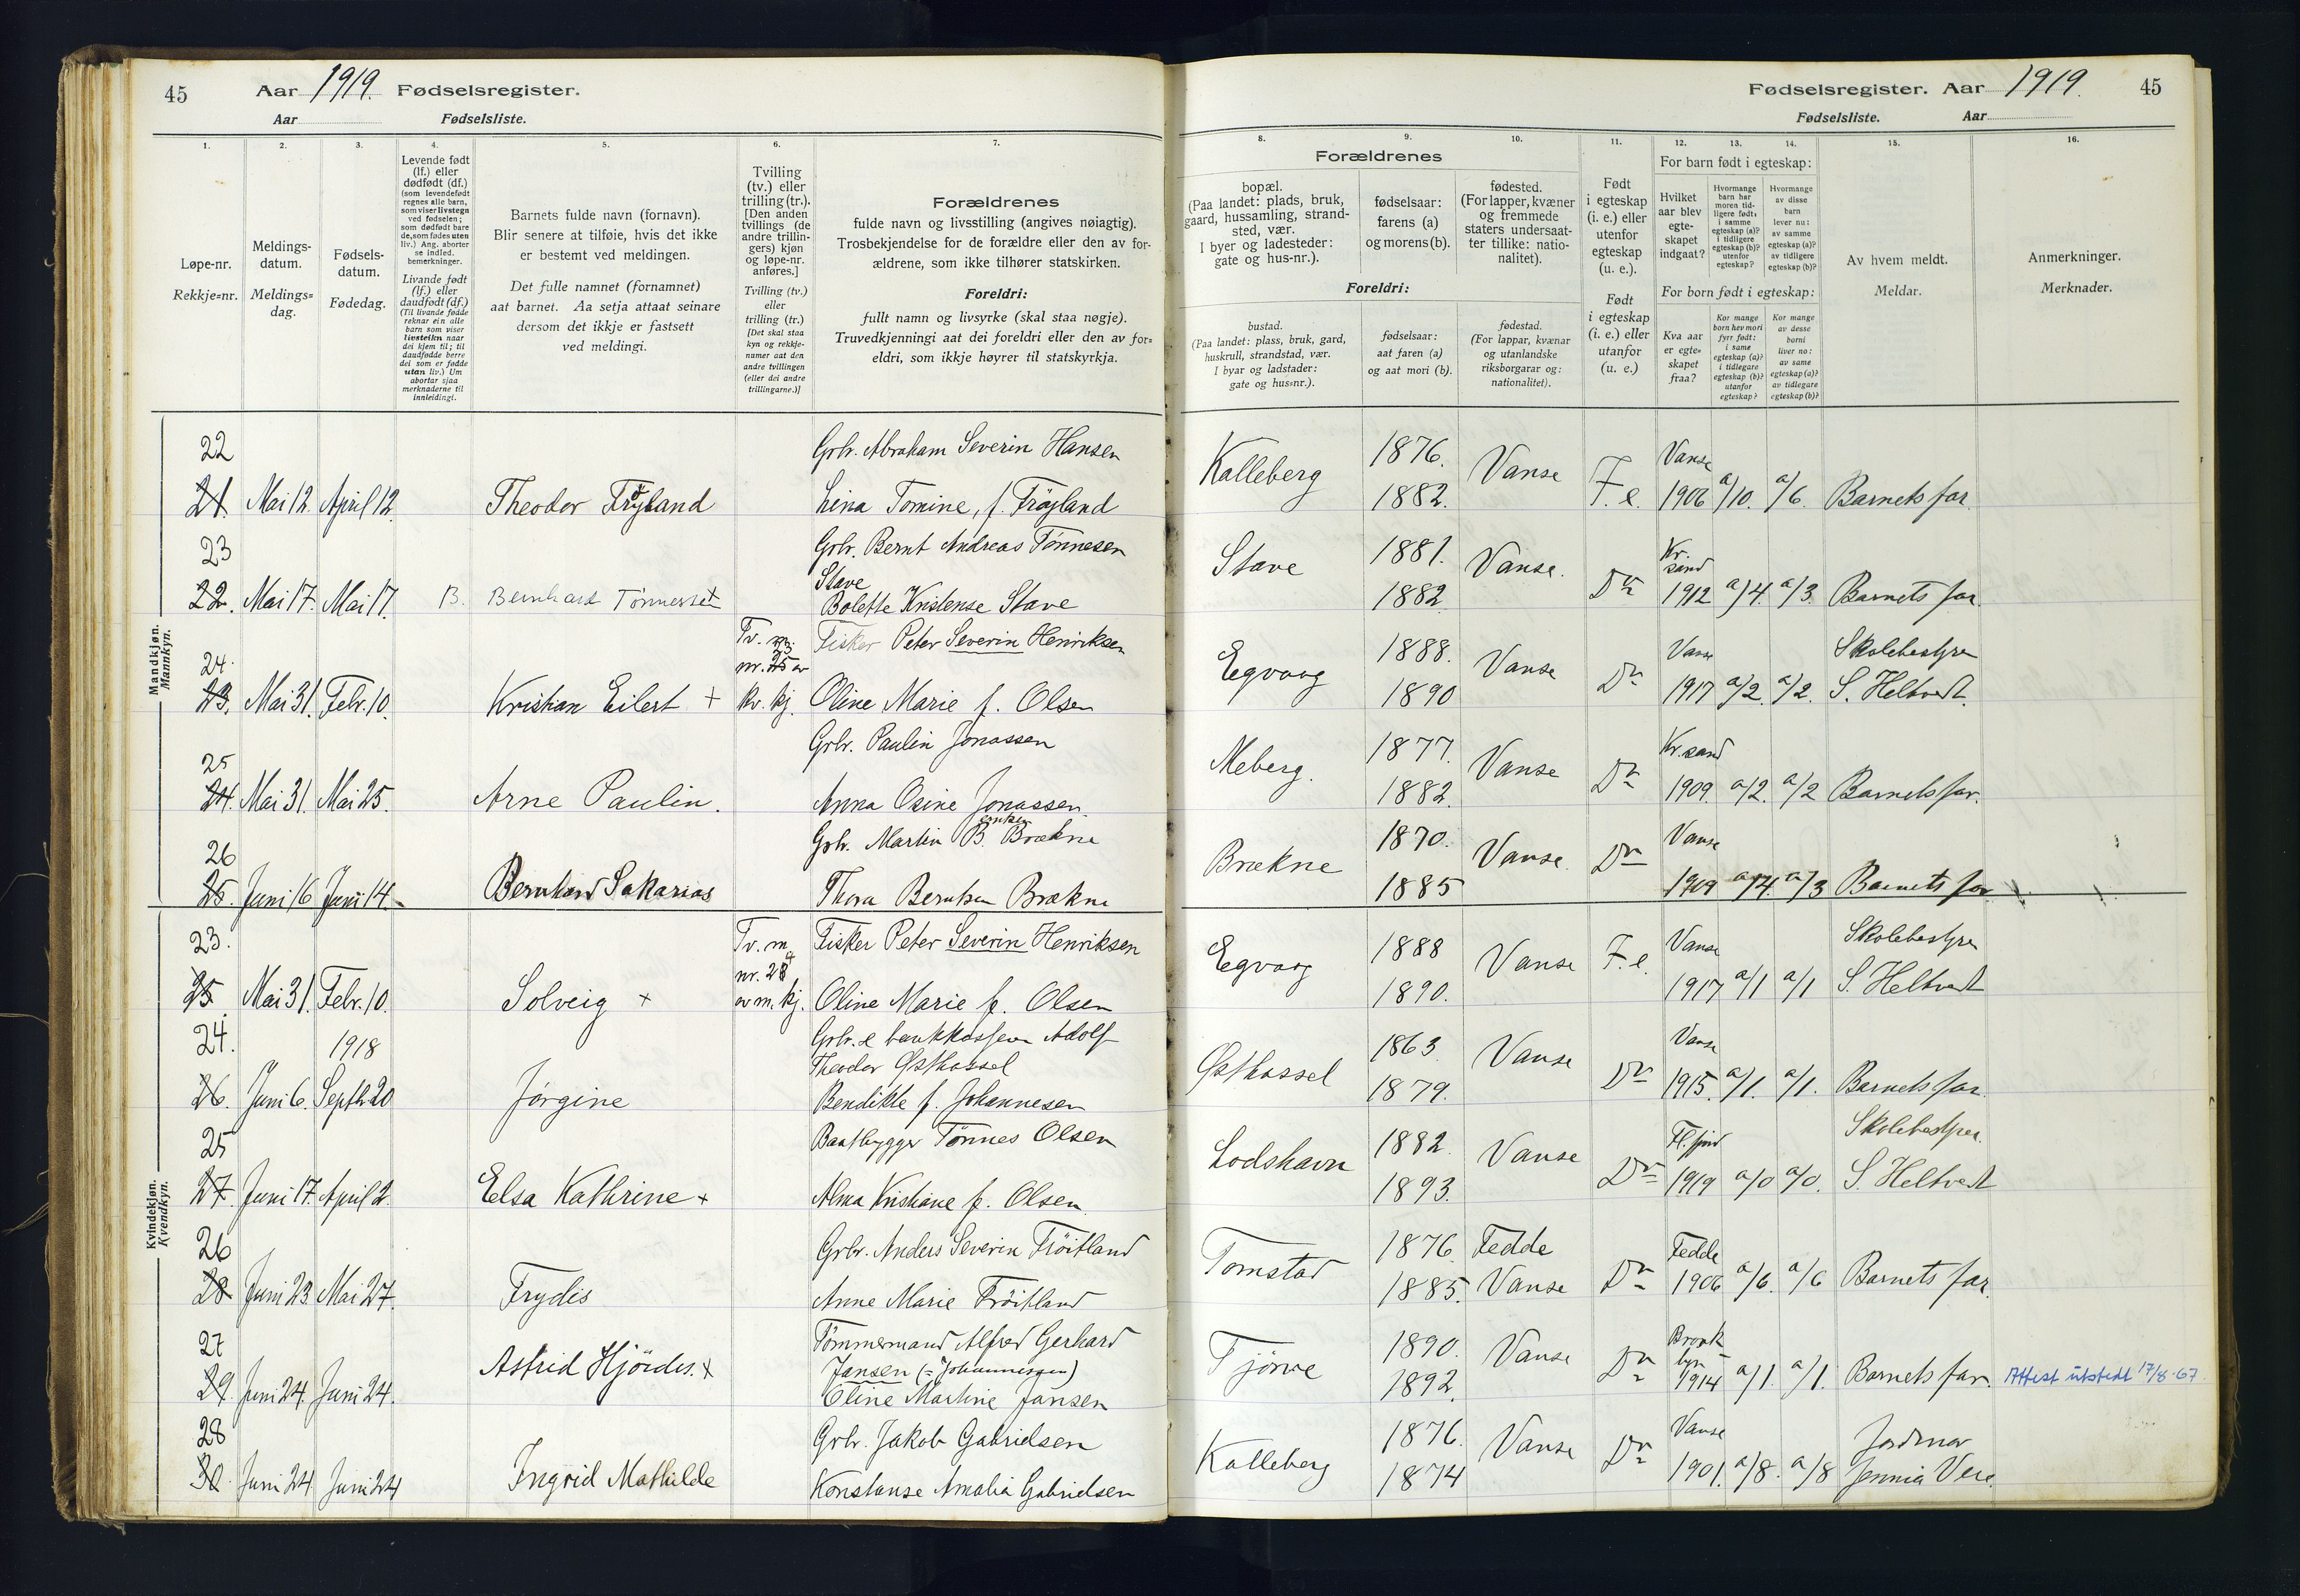 45 Aar 1919. Fødselsregister.
Aar Fødselsliste.
1. 2. 3. 4. 5. 6. 7.
Løpe-nr.
Rekkje-nr.
Meldings-
datum.
Meldings-
dag.
Fødsels-
datum.
Fødedag.
Levende født
(lf.) eller
dødfødt (df.)
(som levendefødt
regnes alle barn,
som viser livstegn
ved fødselen;
som dødfødt bare
de, som fødes uten
liv.) Ang. aborter
se indled.
bemerkninger.
Livande født
(lf.) eller
daudfødt (df.)
(Til livande fødde
reknar ein alle
barn som viser
livsteikn naar
dei kjem til; til
daudfødde berre
dei som er fødde
utan liv.) Um
abortar sjaa
merknaderne til
innleidingi.
Barnets fulde navn (fornavn).
Blir senere at tilføie, hvis det ikke
er bestemt ved meldingen.
Det fulle namnet (fornamnet)
aat barnet. Aa setja attaat seinare
dersom det ikkje er fastsett
ved meldingi.
Tvilling
(tv.) eller
trilling (tr.).
[Den anden
tvillings (de
andre trillin-
gers) kjøn
og løpe-nr.
anføres.]
Tvilling (tv.)
eller
trilling (tr.)
[Det skal staa
kyn og rekkje-
numer aat den
andre tvillingen
(eller dei andre
trillingarne.)]
Forældrenes
fulde navn og livsstilling (angives nøiagtig).
Trosbekjendelse for de forældre eller den av for-
ældrene, som ikke tilhører statskirken.
Foreldri:
fullt namn og livsyrke (skal staa nøgje).
Truvedkjenningi aat dei foreldri eller den av for-
eldri, som ikkje høyrer til statskyrkja.
Mandkjøn.
Mannkyn.
22 Grbr. Abraham Severin Hansen
21. Mai 12. April 12. Theodor Fryland Lina Tomine, f. Fröyland
23 Grbr. Bernt Andreas Tønnesen
Stave
22. Mai 17. Mai 17. B. Bernhard Tønnessen Bolette Kristense Stave
Tv. m. Fisker Peter Severin Henriksen
24. nr. 25 av
23. Mai 31. Febr. 10. Kristian Eilert + kv. kj. Oline Marie f. Olsen
Grbr. Paulin Jonassen
25
24. Mai 31. Mai 25. Arne Paulin. Anna Osine Jonassen
26 Grb. Martin B. Brækne
25. Juni 16 Juni 14. Bernhard Sakarias Thora Berntsen Brækne
Kvindekjøn.
Kvendkyn.
23. Tv. m Fisker Peter Severin Henriksen
nr. 24
25. Mai 31. Febr. 10. Solveig + av m. kj. Oline Marie f. Olsen
24. 1918 Grbr. & bankkasserer Adolf
Theodor Østhassel
26. Juni 6. Septbr 20 Jørgine Bendikte f. Johannesen
25 Baatbygger Tønnes Olsen
27. Juni 17. April 2. Elsa Kathrine + Alma Kristiane f. Olsen
26 Grbr. Anders Severin Fröitland
28 Juni 23. Mai 27. Frydis Anne Marie Fröitland
27 Tömmermand Alfred Gerhard
Astrid Hjördis. + Jansen (= Johannessen)
29. Juni 24. Juni 24. Oline Martine Jansen
28 Grbr. Jakob Gabrielsen
30. Juni 24. Juni 24 Ingrid Mathilde Konstanse Amalia Gabrielsen
Fødselsregister. Aar 1919. 45
Fødselsliste. Aar
8. 9. 10. 11. 12. 13. 14. 15. 16.
Forældrenes
bopæl.
(Paa landet: plads, bruk,
gaard, hussamling, strand-
sted, vær.
I byer og ladesteder:
gate og hus-nr.).
fødselsaar:
farens (a)
og morens (b).
fødested.
(For lapper, kvæner
og fremmede
staters undersaat-
ter tillike: natio-
nalitet).
Foreldri:
bustad.
(Paa landet: plass, bruk, gard,
huskrull, strandstad, vær.
I byar og ladstader:
gate og hus-nr.).
fødselsaar:
aat faren (a)
og aat mori (b).
fødestad.
(For lappar, kvænar
og utanlandske
riksborgarar og:
nationalitet).
Født
i egteskap
(i. e.) eller
utenfor
egteskap
(u. e.).
Født
i egteskap
(i. e.) eller
utanfor
(u. e.)
For barn født i egteskap:
Hvilket
aar blev
egte-
skapet
indgaat?
Hvormange
barn har
moren tid-
ligere født:
i samme
egteskap (a)?
i tidligere
egteskap (b)?
utenfor
egteskap?
Hvormange
av disse
barn
lever nu:
av samme
egteskap (a)?
av tidligere
egteskap (b)?
For born født i egteskap:
Kva aar
er egte-
skapet
fraa?
Kor mange
born hev mori
fyrr født:
i same
egteskap (a)?
i tidlegare
egteskap (b)?
utanfor
egteskap?
Kor mange
av desse
borni
liver no:
av same
egteskap (a)?
av tidlegare
egteskap (b)?
Av hvem meldt.
Meldar.
Anmerkninger.
Merknader.
Kalleberg 1876. Vanse F. e. Vanse
1882. 1906 a/10. a/6. Barnets far.
Stave 1881. Vanse. Do Kr.
sand
1882 1912 a/4. a/3. Barnets far.
Egvaag 1888. Vanse Do Vanse Skolebestyrer
1890 1917 a/2. a/2. S. Heltvedt.
Meberg. 1877. Vanse Do Kr.sand
1882. 1909. a/2. a/2 Barnets far.
Brækne 1870. Vanse. Do Vanse
1885 1909 a/4. a/3 Barnets far
Egvaag 1888 Vanse F. e. Vanse Skolebestyrer
1890. 1917 a/1 a/1 S. Heltvedt
Østhassel 1863 Vanse Do Vanse
1879. 1915. a/1. a/1. Barnets far.
Lodshavn 1882. Vanse Do Fl.fjord Skolebestyrer.
1893. 1919 a/0 a/0. S. Heltvedt
Tomstad 1876 Fedde Do Fedde
1885. Vanse 1906 a/6. a/6 Barnets far.
Tjörve 1890. Vanse Do Brook
lyn
1892. 1914 a/1. a/1. Barnets far. Attest utstedt 17/8-67.
Kalleberg 1876. Vanse Do Vanse Jordmor
1874 1901. a/8. a/8 Jennia Vere.